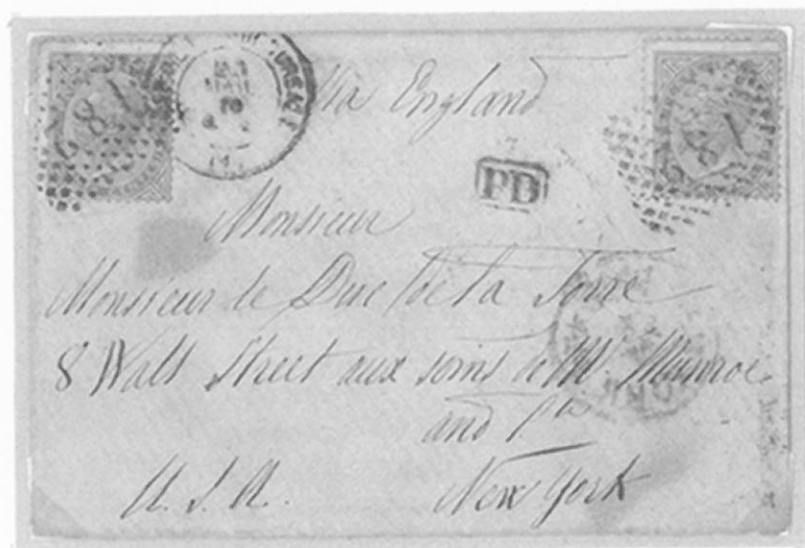 Via England
PD
Monsieur
Monsieur le Duc de la Torre
8 Wall Street aux soins de M. Munroe
and
U. S. A. New York